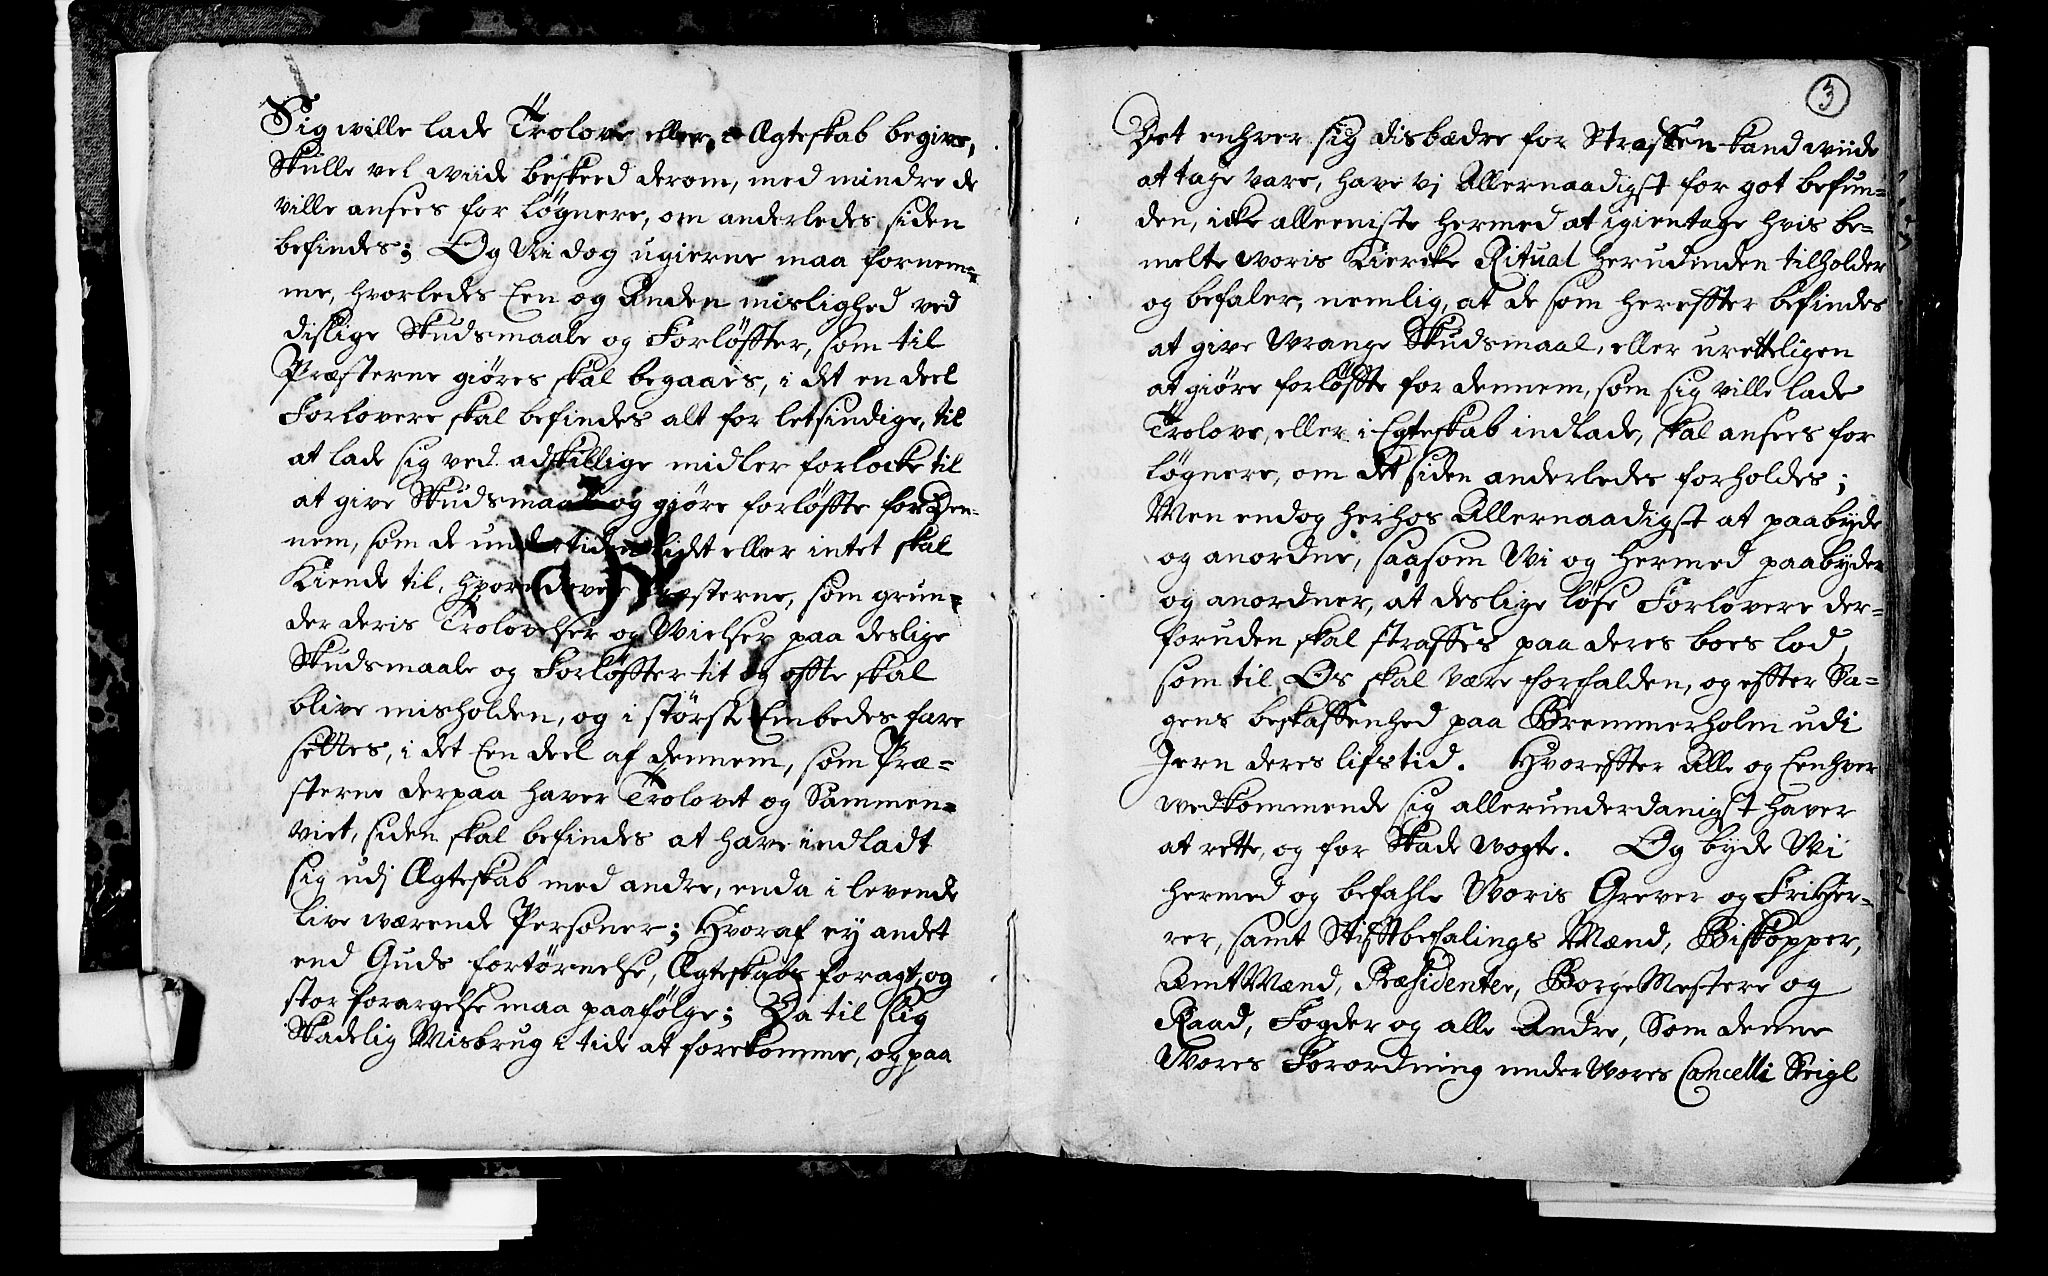 Sig wille lade Trolove eller, i Ægteskab begive,
Skulle vel wiide beskeed derom, med mindre de
ville ansees for løgnere, om anderledes siden
befindes; Og Vi dog ugierne maa fornem-
me, hvorledes Een og Anden mislighed ved
dislige Skudsmaale og Forløffter, som til
Præsterne giøres skal begaaes, i det en deel
Forlovere skal befindes alt for letsindige, til
at lade sig ved adskillige midler forlocke til
at give Skudsmaal og giöre forløffte for Den-
nem, som de undertiden lidet eller intet skal
Kiende til, hvorudover Præsterne, som grun-
der deris Trolovelser og Vielser paa deslige
Skudsmaale og Forløffter tit og offte skal
blive misholden, og i störste Embedes fare
settes, i det Een deel af dennem, som Præ=
sterne derpaa haver Trolovet og Sammen-
viet, siden skal befindes at have indladt
sig udj Ægteskab med andre, enda i levende
live wærende Personer; Hvoraf ey andet
end Guds fortörnelse, Ægteskabs foragt, og
stor forargelse maa paafölge; Da til slig
Skadelig Misbrug i tide at forekomme, og paa
3
Det enhver sig disbædre for Straffen kand wiide
at tage vare, have vj Allernaadigst for got befun-
den, icke alleeniste hermed at igientage hvis be=
melte woris Kiercke Ritual herudinden tilholder
og befaler, nemlig, at de som hereffter befindes
at give Wrange Skudsmaal, eller uretteligen
at giöre forlöffte for dennem, som sig ville lade
Trolove, eller i Egteskab indlade, skal ansees for
løgnere, om det siden anderledes forholdes;
Men endog herhos Allernaadigst at paabyde
og anordne, saasom Vi og hermed paabyder
og anordner, at deslige löse Forlovere der=
foruden skal straffes paa deres boes lod,
som til Os skal være forfalden, og effter Sa=
gens beskaffenhed paa Bremmerholm udi
Jern deres lifstid. Hvoreffter Alle og Eenhver
wedkommende sig allerunderdanigst haver
at rette, og for Skade vogte. Og byde Vi
hermed og befahle Voris Grever og Friher-
rer, samt Stifftbefalings Mænd, Biskopper,
AmtMænd, Præsidenter, BorgeMestere og
Raad, Fogder og alle Andre, Som denne
Vores Forordning under Vores Cancelli Seigl